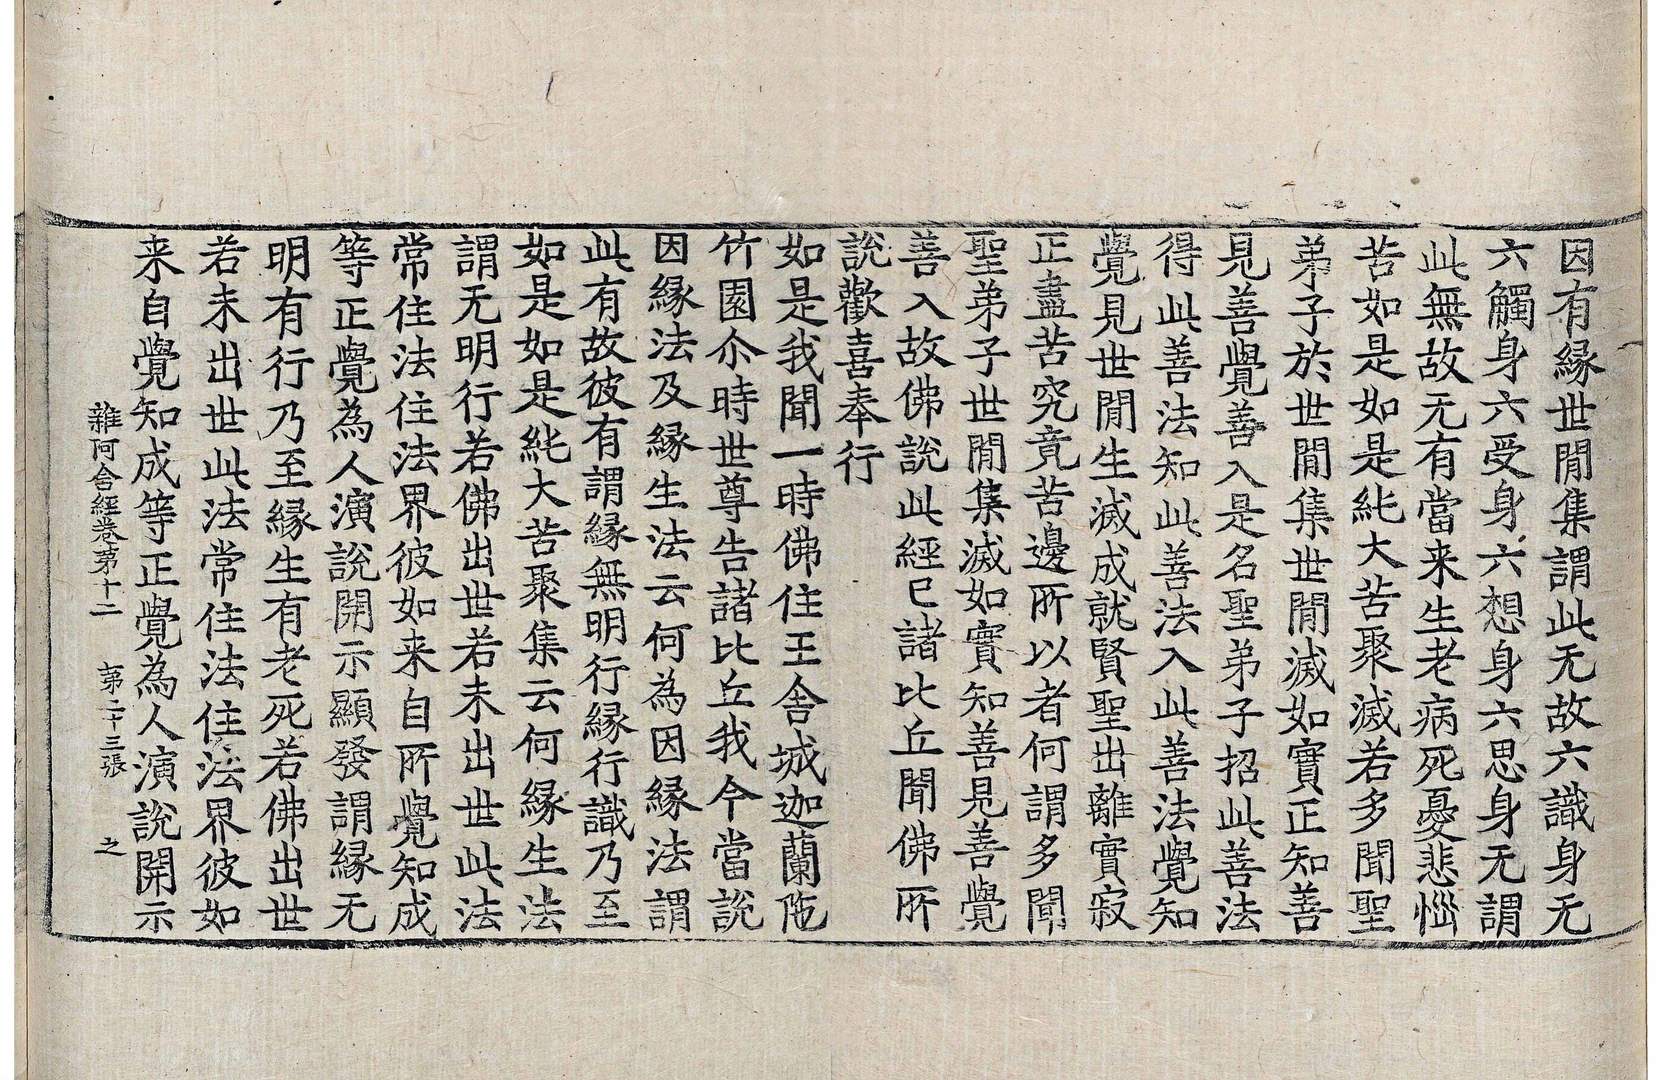 因有縁世間集謂此无故六識身无
六觸身六受身六想身六思身无謂
此無故无有當来生老病死憂悲惱
苦如是如是純大苦聚滅若多聞聖
弟子於世間集世間滅如實正知善
見善覺善入是名聖弟子招此善法
得此善法知此善法入此善法覺知
覺見世間生滅成就賢聖出離實寂
正盡苦究竟苦邊所以者何謂多聞
聖弟子世間集滅如實知善見善覺
善入故佛說此經已諸比丘聞佛所
說歡喜奉行
如是我聞一時佛住王舍城迦蘭陁
竹園尒時世尊告諸比丘我今當說
因縁法及縁生法云何為因縁法謂
此有故彼有謂縁無明行縁行識乃至
如是如是純大苦聚集云何縁生法
謂无明行若佛出世若未出世此法
常住法住法界彼如来自所覺知成
等正覺為人演說開示顯發謂縁无
明有行乃至縁生有老死若佛出世
若未出世此法常住法住法界彼如
来自覺知成等正覺為人演說開示
雜阿含經卷第十二 第二十三張 之